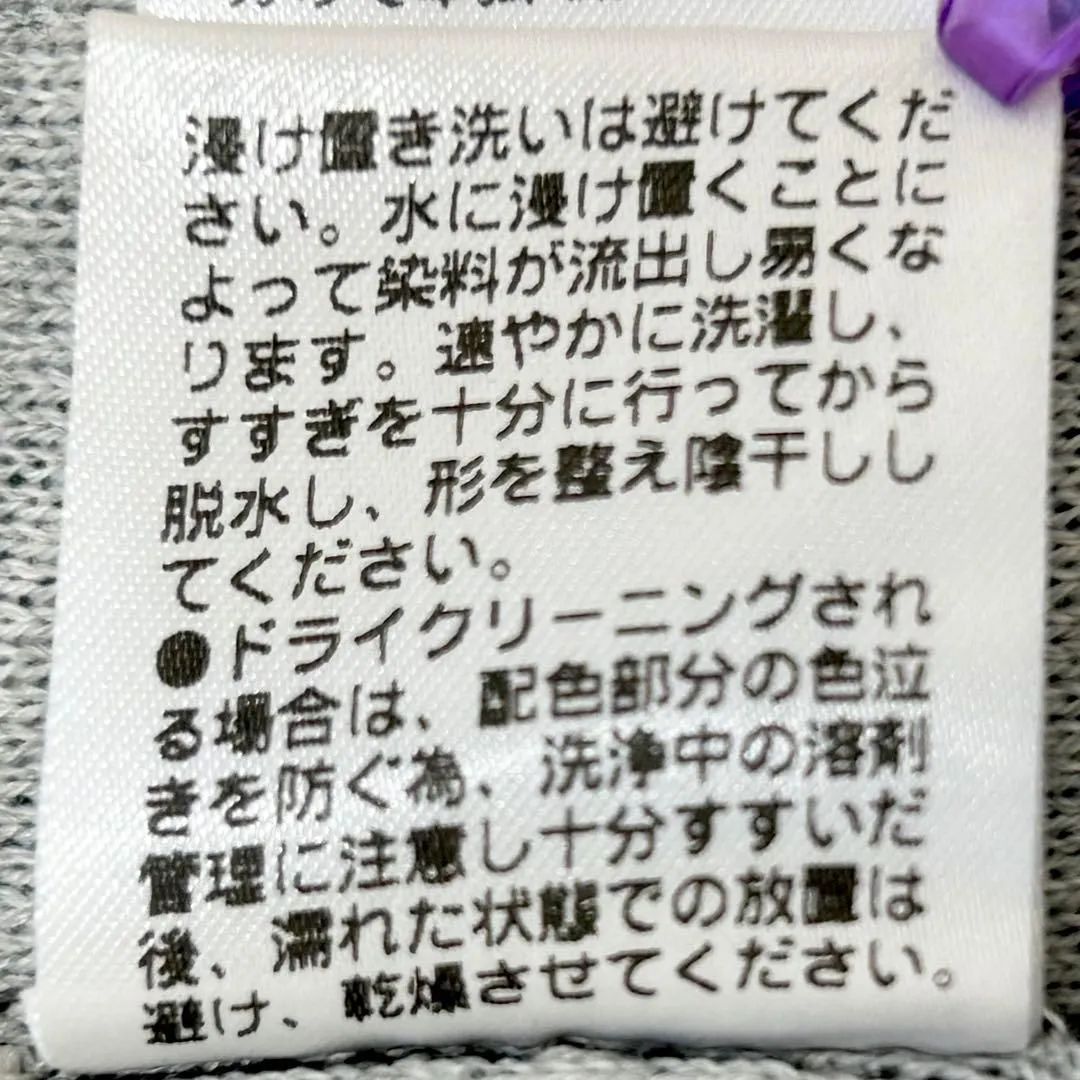 浸け置き洗いは避けてくだ
さい。水に浸け置くことに
よって染料が流出し易くな
ります。速やかに洗濯し、
すすぎを十分に行ってから
脱水し、形を整え陰干しし
てください。
●ドライクリーニングされ
る場合は、配色部分の色泣
きを防ぐ為、洗浄中の溶剤
管理に注意し十分すすいだ
後、濡れた状態での放置は
避け、乾燥させてください。